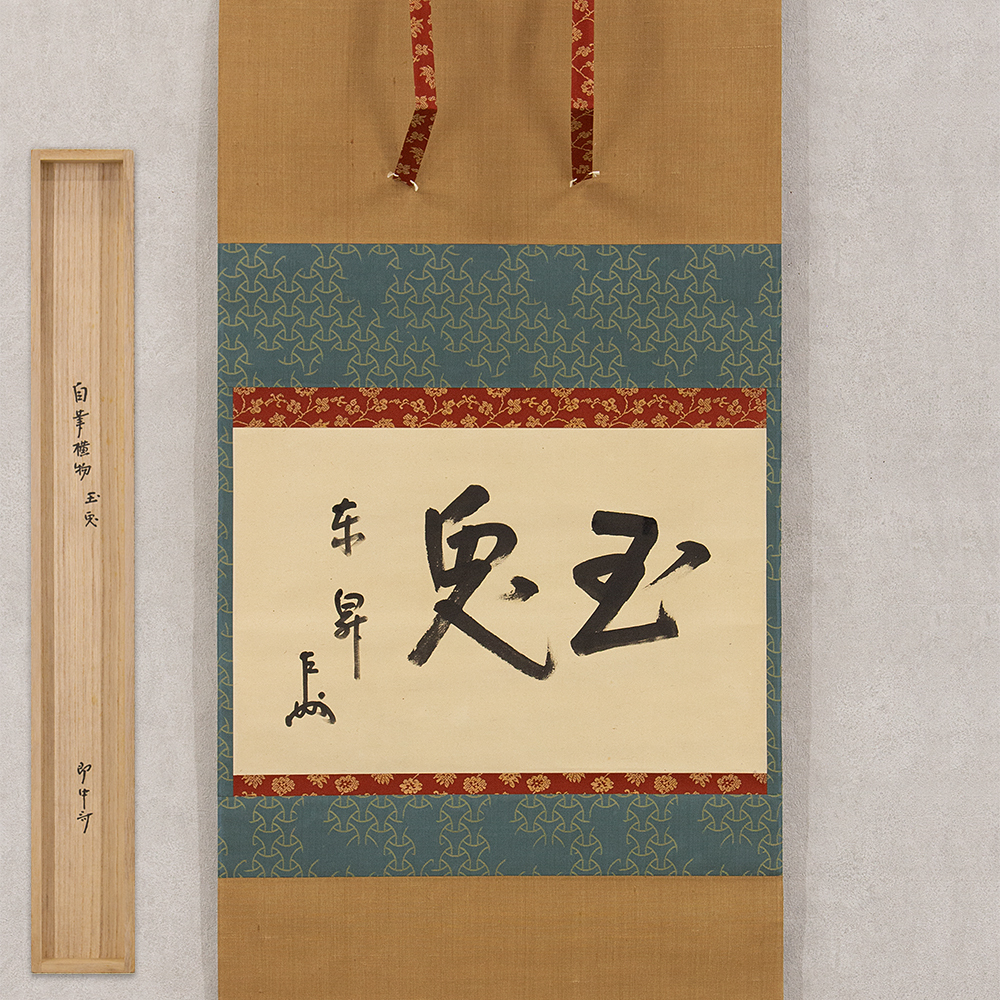 玉兎
東昇
自筆横物
玉兎
即中斎